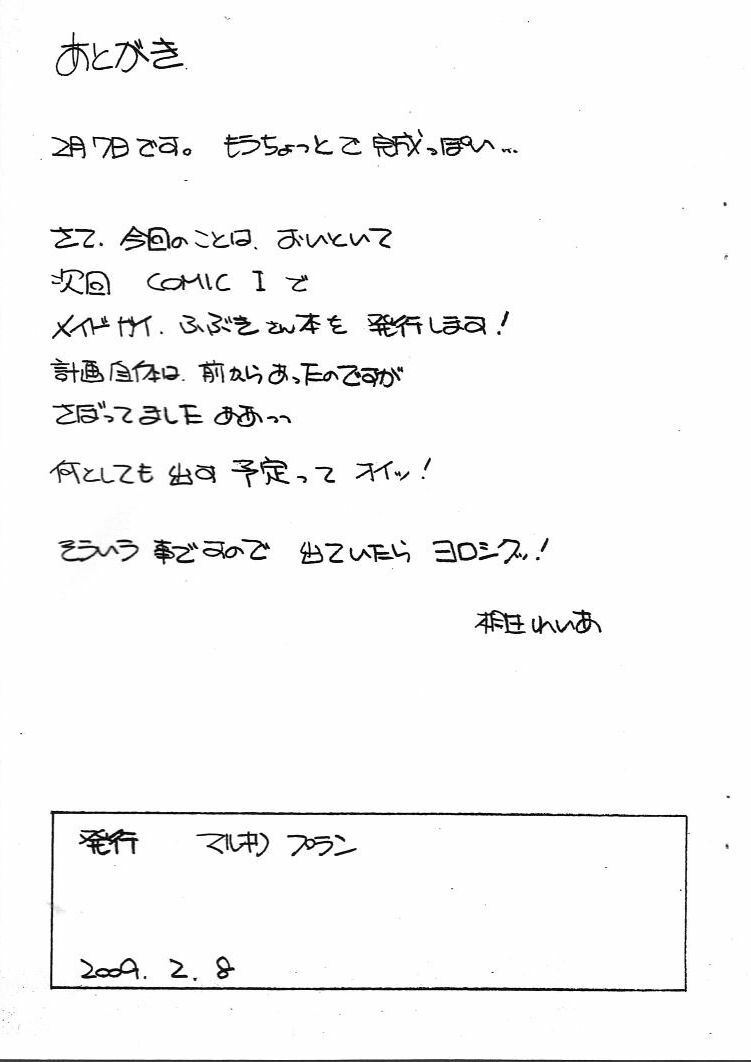 あとがき
2月7日です。 もうちょっとで 完成っぽい…
さて、今回のことは、おいといて
次回 COMIC I で
メイドガイ、ふぶきさん本を 発行します!
計画自体は、前からあったのですが
さぼってました ああっっ
何としても 出す 予定って オイッ!
そういう 事ですので 出ていたら ヨロシグッ!
桐生れいあ
発行 マルキリ プラン
2009. 2. 8